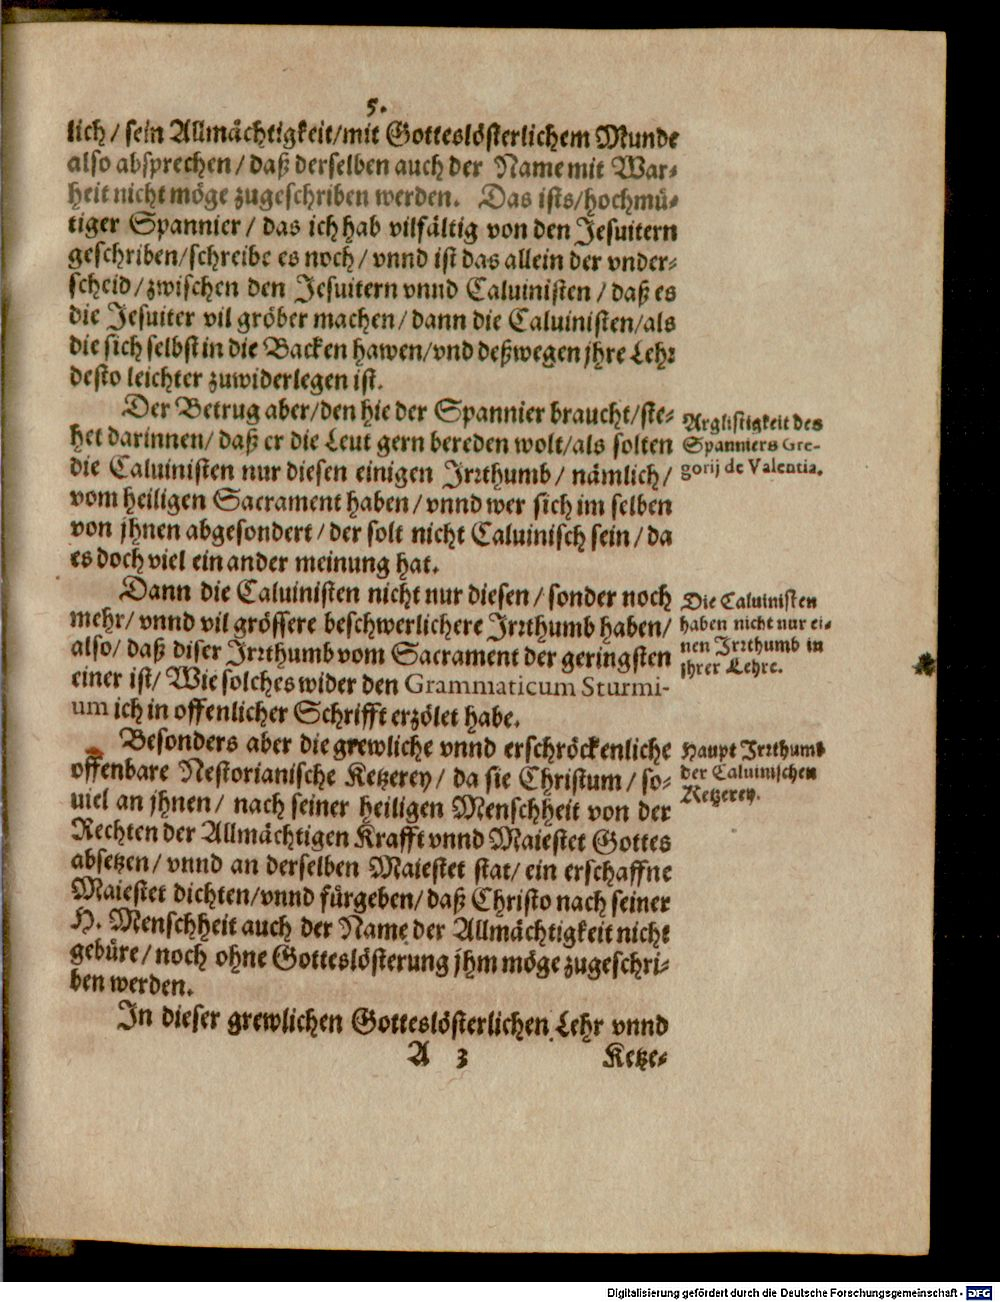 5.
lich / sein Allmächtigkeit/mit Gotteslösterlichem Munde
also absprechen / daß derselben auch der Name mit War-
heit nicht möge zugeschriben werden. Das ists/hochmü-
tiger Spannier / das ich hab vilfältig von den Jesuitern
geschriben/schreibe es noch / vnnd ist das allein der vnder-
scheid / zwischen den Jesuitern vnnd Caluinisten / daß es
die Jesuiter vil gröber machen / dann die Caluinisten/als
die sich selbst in die Backen hawen/vnd deßwegen jhre Lehr
desto leichter zuwiderlegen ist.
Der Betrug aber/den hie der Spannier braucht/ste-
het darinnen/ daß er die Leut gern bereden wolt/als solten
die Caluinisten nur diesen einigen Irrthumb / nämlich /
vom heiligen Sacrament haben / vnnd wer sich im selben
von jhnen abgesondert / der solt nicht Caluinisch sein / da
es doch viel ein ander meinung hat.
Arglistigkeit des
Spanniers Gre-
gorij de Valentia.
Dann die Caluinisten nicht nur diesen / sonder noch
mehr/ vnnd vil grössere beschwerlichere Irrthumb haben/
also/ daß diser Irrthumb vom Sacrament der geringsten
einer ist/ Wie solches wider den Grammaticum Sturmi-
um ich in offenlicher Schrifft erzölet habe.
Die Caluinisten
haben nicht nur ei-
nen Irrthumb in
jhrer Lehre.
Besonders aber die grewliche vnnd erschröckenliche
offenbare Nestorianische Ketzerey / da sie Christum / so-
uiel an jhnen / nach seiner heiligen Menschheit von der
Rechten der Allmächtigen Krafft vnnd Maiestet Gottes
absetzen / vnnd an derselben Maiestet stat/ ein erschaffne
Maiestet dichten/vnnd fürgeben/ daß Christo nach seiner
H. Menschheit auch der Name der Allmächtigkeit nicht
gebüre / noch ohne Gotteslösterung jhm möge zugeschri-
ben werden.
Haupt Irrthumb
der Caluinischen
Ketzerey.
In dieser grewlichen Gotteslösterlichen Lehr vnnd
A 3 Ketze-
Digitalisierung gefördert durch die Deutsche Forschungsgemeinschaft - DFG